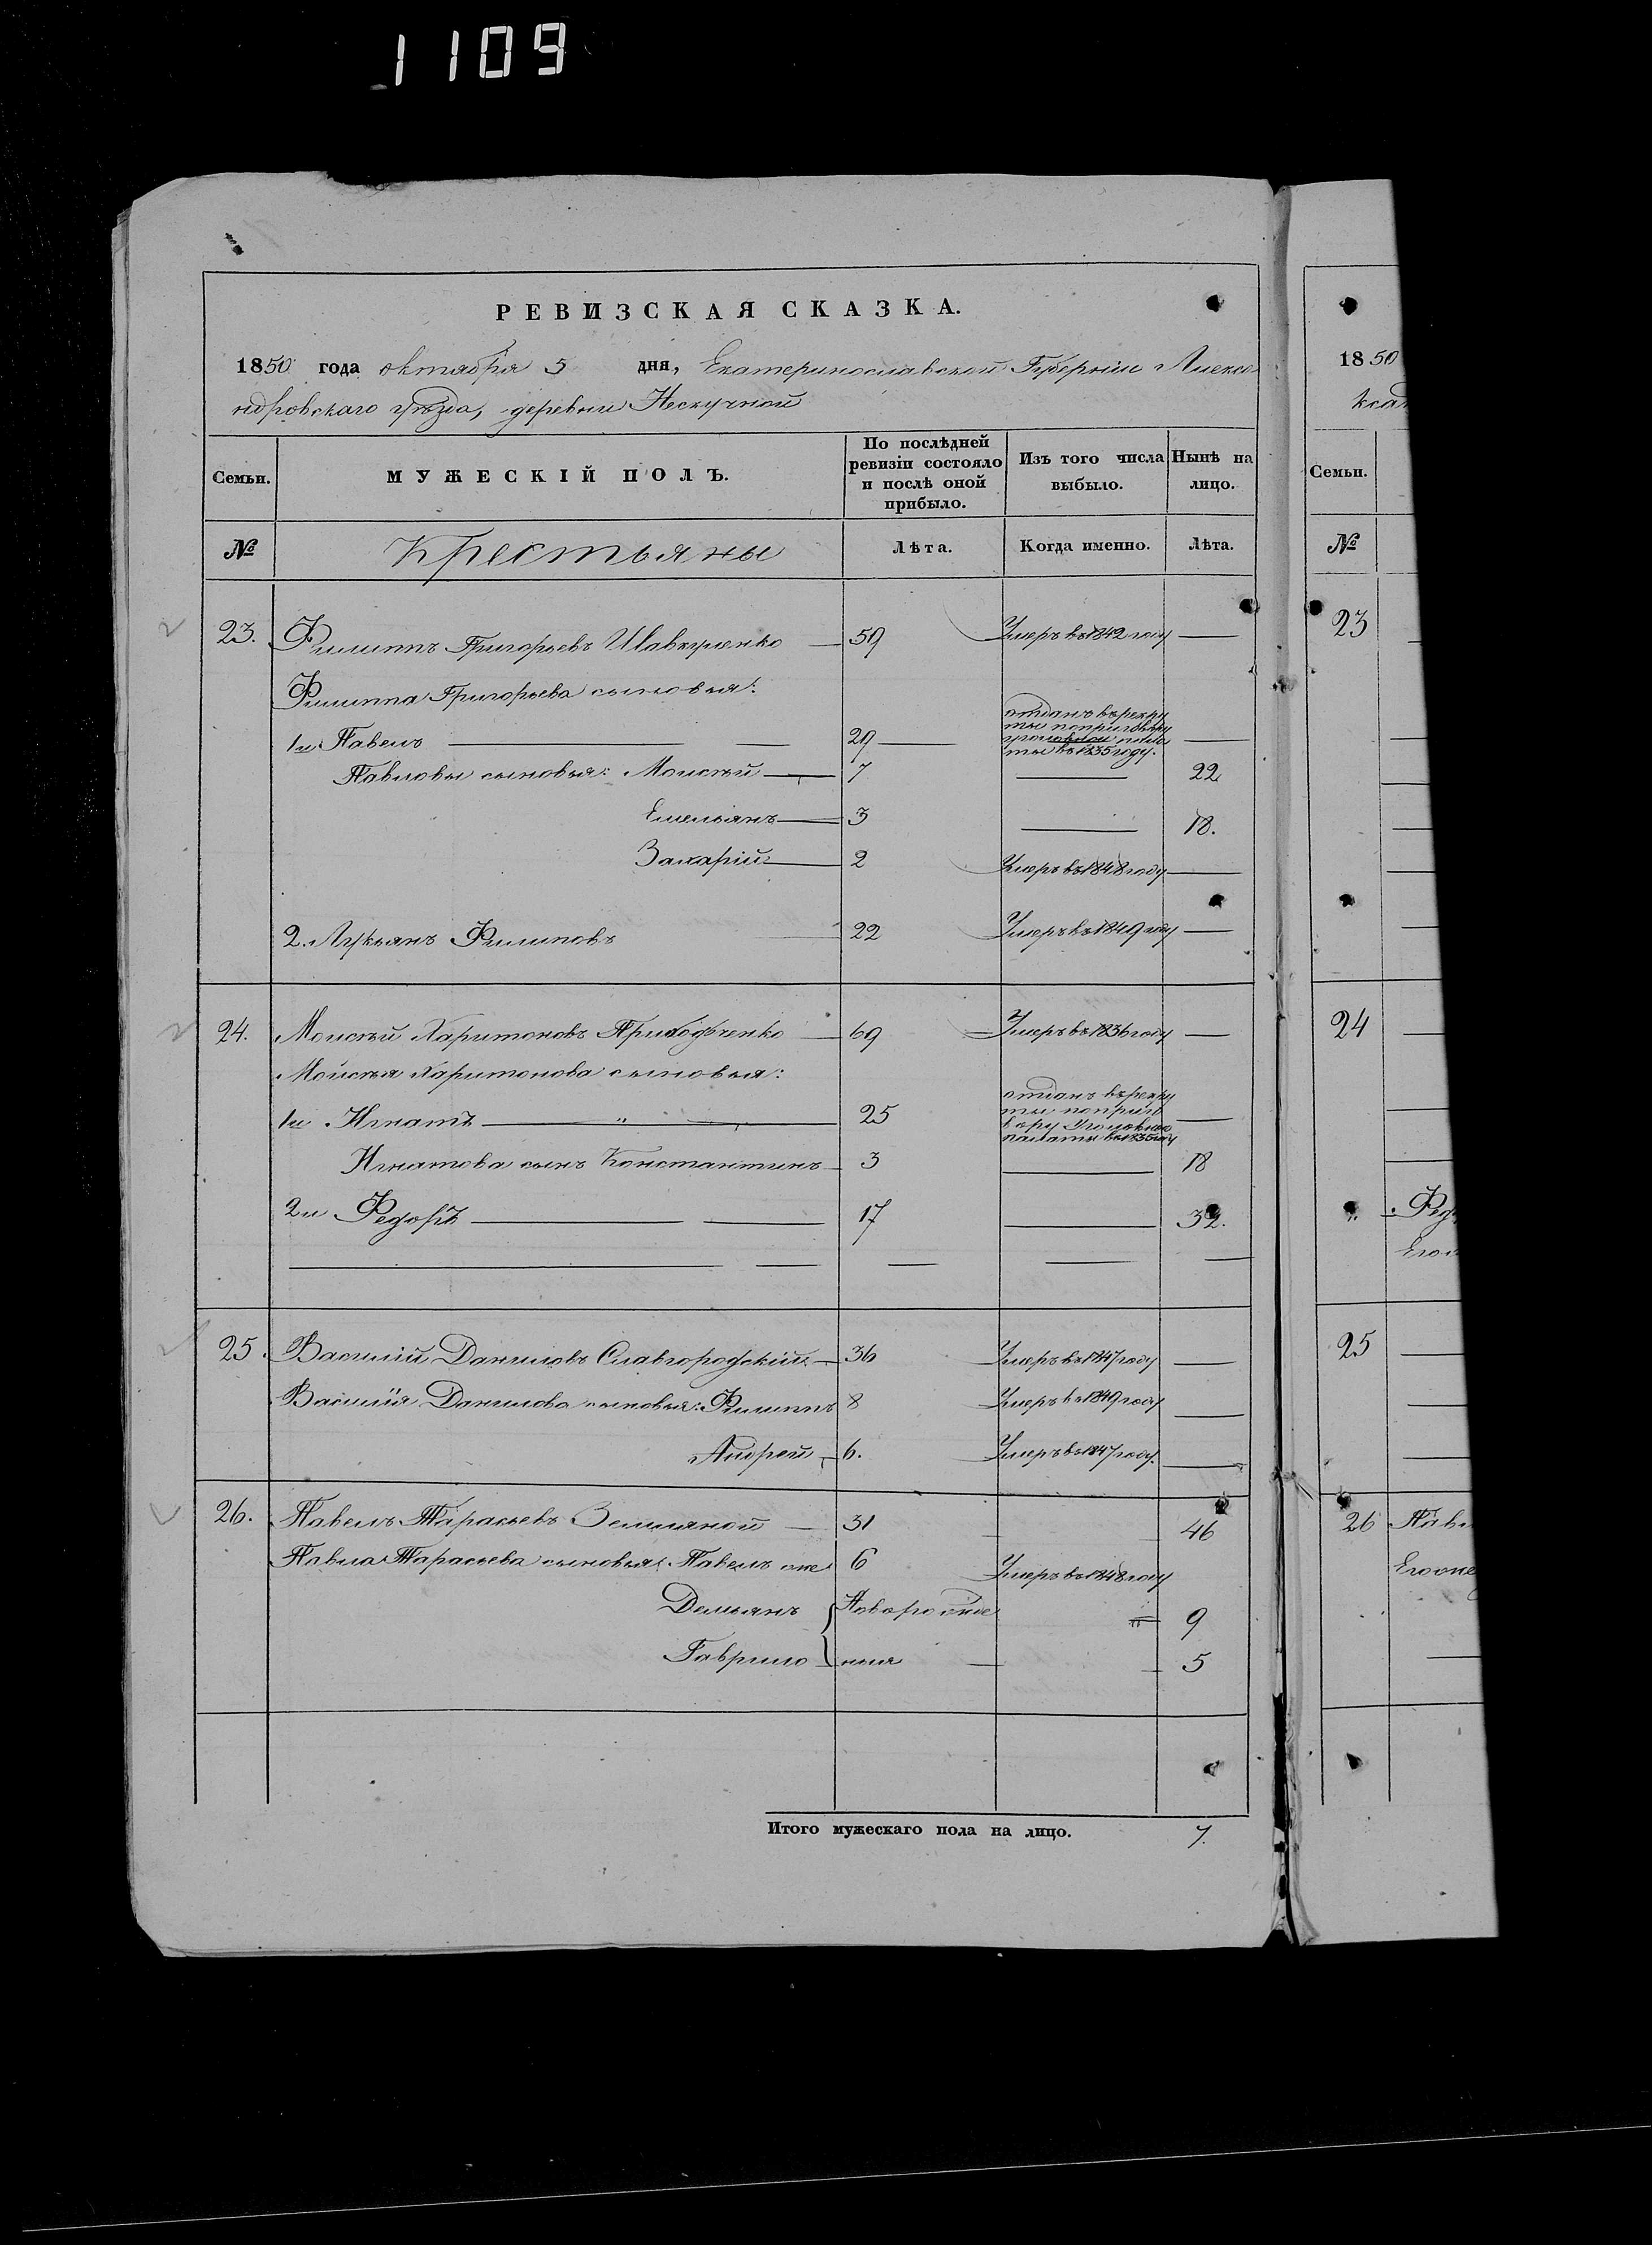 1109
РЕВИЗСКАЯ СКАЗКА.
1850 года октября 5 дня, Екатеринославской Губернiи Алекса
ндровскаго уѣзда, деревни Нескучной
Семьи. МУЖЕСКІЙ ПОЛЪ. По послѣдней ревизіи состояло и послѣ оной прибыло. Изъ того числа выбыло. Нынѣ на лицо.
№ Крестьяны Лѣта. Когда именно. Лѣта.
23. Филиппъ Григорьевъ Шавкуленко 59 Умеръ въ 1842 году
Филиппа Григорьева сыновья:
1й Павелъ 29 отданъ въ рекру
ты поприговору
уголовной пала
ты въ 1835 году.
Павловы сыновья: Моисѣй 7 22
Емельянъ 3 18.
Захарій 2 Умеръ въ 1848 году
2. Лукьянъ Филиповъ 22 Умеръ въ 1849 году
24. Моисѣй Харитоновъ Приходченко 69 Умеръ въ 1836 году
Мойсѣя Харитонова сыновья:
1й Игнатъ " 25 отданъ въ рекру
ты поприго
вору Уголовной
палаты въ 1835 году
Игнатова сынъ Константинъ 3 18
2й Федоръ 17 32.
25. Василій Даниловъ Славгородскій 36 Умеръ въ 1847 году
Василія Данилова сыновья: Филиппъ 8 Умеръ въ 1849 году
Андрей 6. Умеръ въ 1847 году.
26. Павелъ Тарасьевъ Земляной 31 46
Павла Тарасьева сыновья: Павелъ же 6 Умеръ въ 1848 году
Демьянъ Новорожде " 9
Гаврило нныя 5
Итого мужескаго пола на лицо. 7.
1850
ксан
Семьи.
№
23
24
" Фед
Его
25
26 Пав
Его же